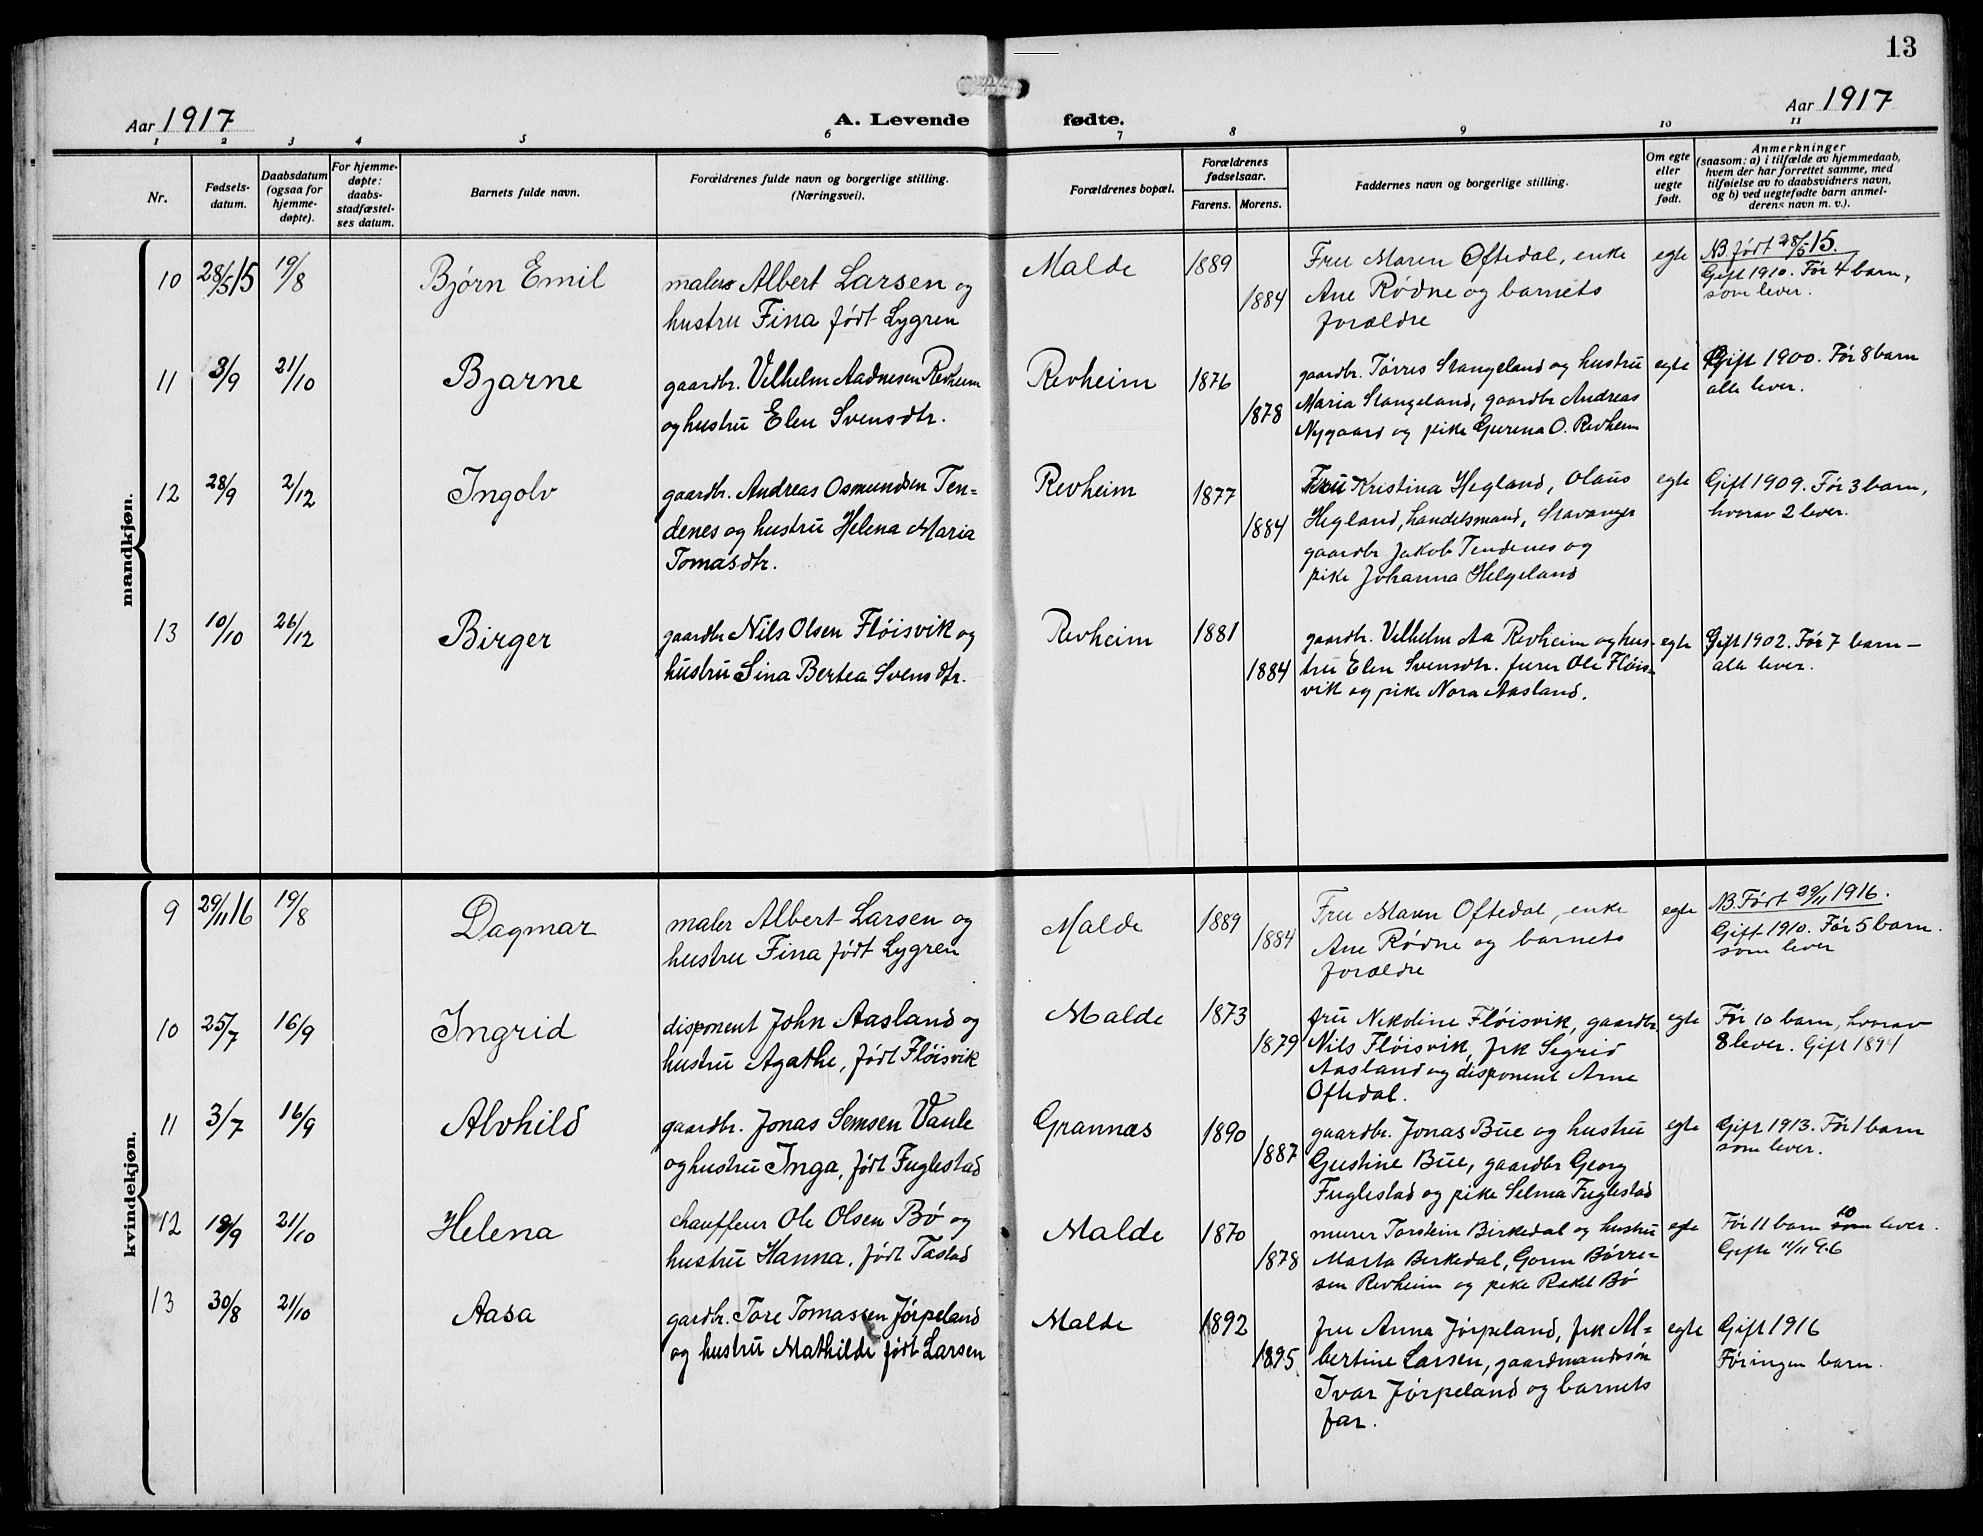 13
Aar 1917
A. Levende fødte.
Aar 1917
1 2 3 4 5 6 7 8 9 10 11
Nr.
Fødsels-
datum.
Daabsdatum
(ogsaa for
hjemme-
døpte).
For hjemme-
døpte:
daabs-
stadfæstel-
ses datum.
Barnets fulde navn.
Forældrenes fulde navn og borgerlige stilling.
(Næringsvei).
Forældrenes bopæl.
Forældrenes
fødselsaar.
Farens. Morens.
Faddernes navn og borgerlige stilling.
Om egte
eller
uegte
født.
Anmerkninger
(saasom: a) i tilfælde av hjemmedaab,
hvem der har forrettet samme, med
tilføielse av to daabsvidners navn,
og b) ved uegtefødte barn anmel-
derens navn m. v.).
mandkjøn.
10 28/5 15 19/8 Bjørn Emil
maler Albert Larsen og
hustru Fina født Lygren
Malde 1889 1884
Fru Maren Oftedal, enke
Ane Rødne og barnets
forældre
egte
NB født 28/5-15.
Gift 1910. Før 4 barn,
som lever.
11 3/9 21/10 Bjarne
gaardbr. Vilhelm Aadnesen Revheim
og hustru Elen Svensdtr.
Revheim 1876 1878
gaardbr. Tørres Stangeland og hustru
Maria Stangeland, gaardbr Andreas
Nygaard og pike Gurina O. Revheim
egte
Gift 1900. Før 8 barn
alle lever.
12 28/9 2/12 Ingolv
gaardbr. Andreas Osmundsen Ten=
denes og hustru Helena Maria
Tomasdtr.
Revheim 1877 1884
Fru Kristina Hegland, Olaus
Hegland, handelsmand, Stavanger
gaardbr Jakob Tendenes og
pike Johanna Helgeland
egte
Gift 1909. Før 3 barn,
hvorav 2 lever.
13 10/10 26/12 Birger
gaardbr Nils Olsen Fløisvik og
hustru Sina Bertea Svensdtr.
Revheim 1881 1884
gaardbr. Vilhelm Aa Revheim og hus-
tru Elen Svensdtr. furer Ole Fløis-
vik og pike Nora Aasland.
egte
Gift 1902. Før 7 barn -
alle lever.
kvindekjøn.
9 29/11 16 19/8 Dagmar
maler Albert Larsen og
hustru Fina født Lygren
Malde 1889 1884
Fru Maren Oftedal, enke
Ane Rødne og barnets
forældre
egte
NB. Født 29/11 1916.
Gift 1910. Før 5 barn.
som lever
10 25/7 16/9 Ingrid
disponent John Aasland og
hustru Agathe, født Fløisvik
Malde 1873 1879
fru Nikoline Fløisvik, gaardbr.
Nils Fløisvik, frk Sigrid
Aasland og disponent Arne
Oftedal.
egte
Før 10 barn, hvorav
8 lever. Gift 1894
11 3/7 16/9 Alvhild
gaardbr. Jonas Semsen Vaule
og hustru Inga, født Fuglestad
Grannæs 1890 1887
gaardbr. Jonas Bue og hustru
Gustine Bue, gaardbr Georg
Fuglestad og pike Selma Fuglestad
egte
Gift 1913. Før 1 barn
som lever.
12 18/9 21/10 Helena
chauffeur Ole Olsen Bø og
hustru Hanna, født Tastad
Malde 1870 1878
murer Torstein Birkedal og hustru
Marta Birkedal, Gorm Børre=
sen Revheim og pike Rakel Bø
egte
Før 11 barn 10 som lever.
Gifte 11/11 96
13 30/8 21/10 Aasa
gardbr. Tore Tomassen Jørpeland
og hustru Mathilde født Larsen
Malde 1892 1895
fru Anna Jørpeland, frk Al=
bertine Larsen, gaardmandssøn
Ivar Jørpeland og barnets
far.
egte
Gift 1916
Før ingen barn.